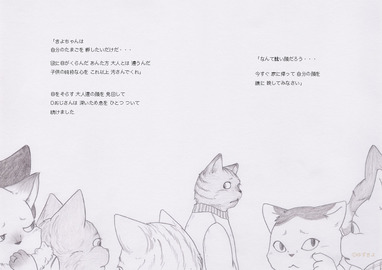 「きよちゃんは
自分のたまごを 返したいだけだ・・・
因に目がくらんだ あんた方 大人とは 違うんだ
子供の純粋な心を これ以上 汚さんでくれ」
目をそらす 大人達の顔を 見回して
Oおじさんは 深いため息を ひとつ ついて
続けました
「なんて醜い顔だろう・・・
今すぐ 家に帰って 自分の顔を
鏡に 映してみなさい」